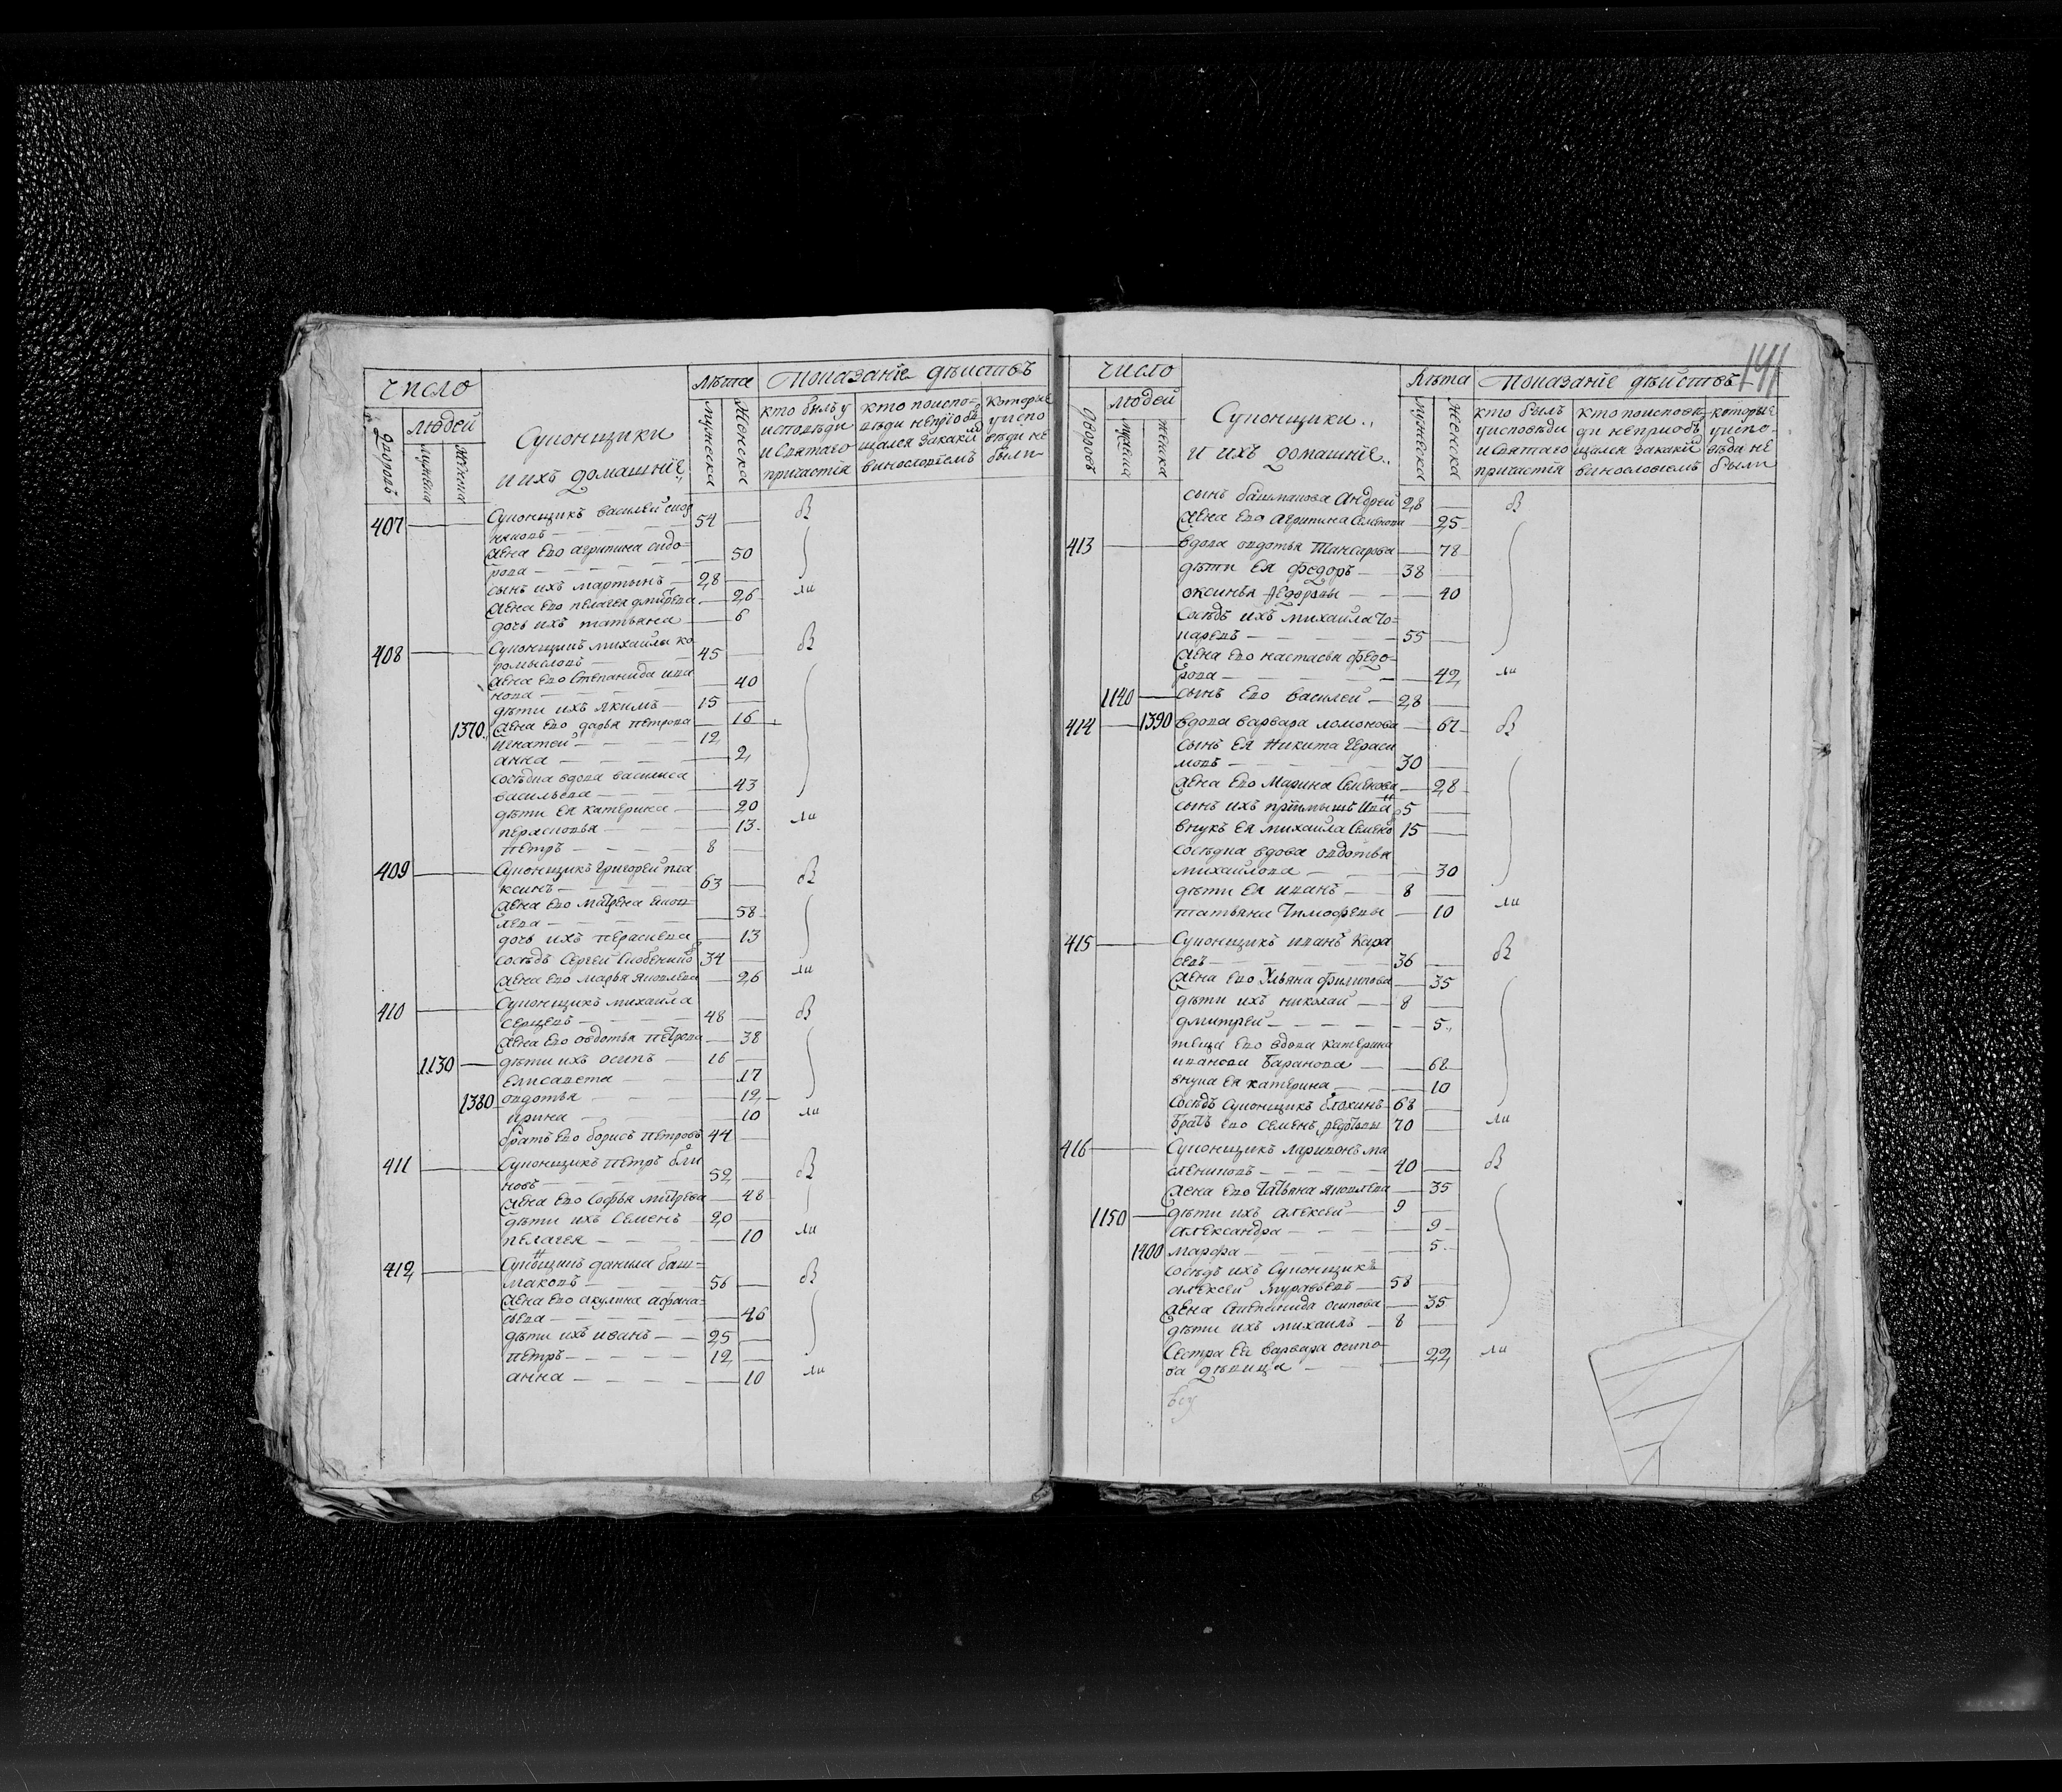 число
лѣта показанiе дѣиствъ
дворовъ
людей
мужеска
женска
Суконщики
и ихъ домашнiе
мужеска
женска
кто былъ у
исповѣди
и святаго
причастiя
кто по испо-
вѣди не прiоб
щался за какимъ
винословiемъ
которые
у испо
вѣди не
были
407 Суконщикъ василей
54 в
жена ево агрипина сидо-
рова 50
сынъ ихъ мартынъ 28
жена ево пелагея дмитрева 26 ли
дочь ихъ татьяна 6
408 Суконщикъ михаила ко
ромысловъ 45 в
жена ево степанида ива
нова 40
дѣти ихъ якимъ 15
1370 жена ево дарья петрова 16
игнатей 12
анна 2
сосѣдка вдова василиса
васильева 43
дѣти ея катерина 20
перасковья 13 ли
петръ 8
409 Суконщикъ григорей пла
ксинъ 63 в
жена ево матрена яков-
лева 58
дочь ихъ перасковея 13
сосѣдъ сергей 34
жена ево марья яковлева 26 ли
410 Суконщикъ михаила
серцевъ 48 в
жена ево овдотья петрова 38
1130 дѣти ихъ осипъ 16
елисавета 17
1380 овдотья 12
ирина 10 ли
братъ ево борисъ петровъ 44
411 Суконщикъ петръ бли
новъ 52 в
жена ево софья митрева 48
дѣти ихъ семенъ 20
пелагея 10 ли
412 Суконщикъ данила баш-
маковъ 56 в
жена ево акулина афана-
сьева 46
дѣти ихъ иванъ 25
петръ 12
анна 10 ли
141
число
лѣта показанiе дѣйствъ
дворовъ
людей
мужеска
женска
Суконщики
и ихъ домашнiе
мужеска
женска
кто былъ
у исповѣди
и святаго
причастiя
кто по исповѣ-
ди не прiобъ
щался за какимъ
винословiемъ
которые
у испо-
вѣди не
были
сынъ башмакова андрей 28 в
жена ево агрипина семенова 25
413 вдова овдотья 78
дѣти ея федоръ 38
оксинья федоровы 40
сосѣдъ ихъ михаила то-
каревъ 55
жена ево настасья федо-
рова 42 ли
1140 сынъ ево василей 28
414 1390 вдова варвара ломонова 67 в
сынъ ея никита гераси
мовъ 30
жена ево марина семенова 28
сынъ ихъ прiимышъ 5
внукъ ея михаила семено 15
сосѣдка вдова овдотья
михайлова 30
дѣти ея иванъ 8
татьяна тимофевы 10 ли
415 Суконщикъ иванъ кара
севъ 36 в
жена ево ульяна филипова 35
дѣти ихъ николай 8
дмитрей 5
теща ево вдова катерина
иванова баранова 68
внука ея катерина 10
сосѣдъ суконщикъ 68
братъ ево семенъ федотовы 70 ли
416 Суконщикъ ларивонъ ма
слениковъ 40 в
жена ево татьяна яковлева 35
1150 дѣти ихъ алексей 9
александра 9
1400 марфа 5
сосѣдъ ихъ суконщикъ
алексей муравьевъ 58
жена степанида осипова 35
дѣти ихъ михаилъ 8
сестра ея варвара осипо-
ва дѣвица 22 ли